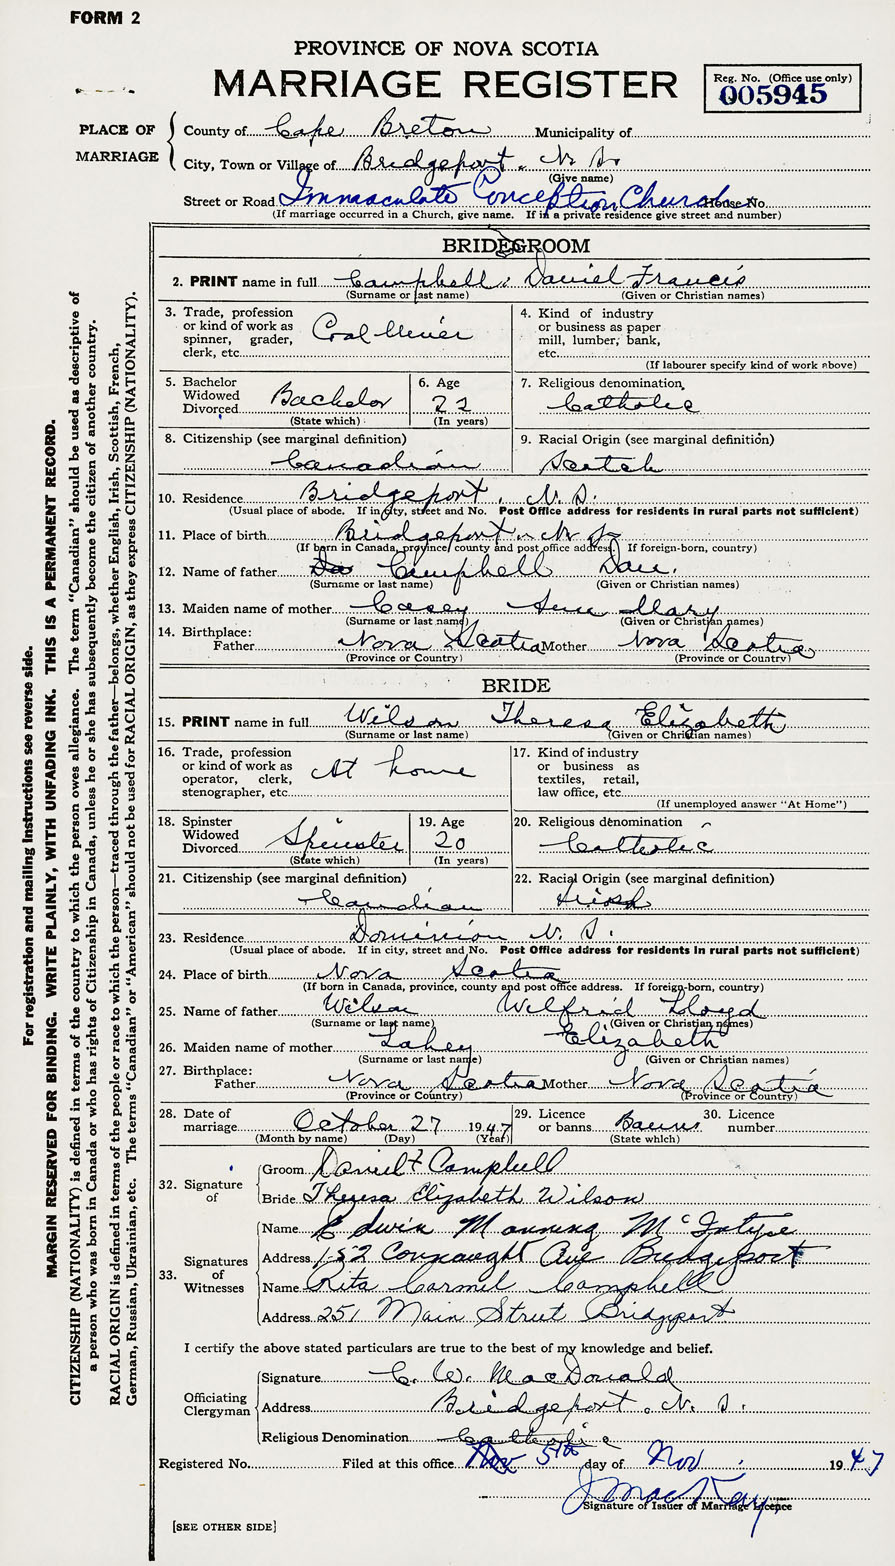 FORM 2
PROVINCE OF NOVA SCOTIA
MARRIAGE REGISTER
Reg. No. (Office use only)
005945
PLACE OF MARRIAGE
County of Cape Breton Municipality of
City, Town or Village of Bridgeport, N. S.
(Give name)
Street or Road Immaculate Conception Church House No.
(If marriage occurred in a Church, give name. If in a private residence give street and number)
BRIDEGROOM
2. PRINT name in full Campbell, Daniel Francis
(Surname or last name) (Given or Christian names)
3. Trade, profession or kind of work as spinner, grader, clerk, etc. Coal Miner
4. Kind of industry or business as paper mill, lumber, bank, etc.
(If labourer specify kind of work above)
5. Bachelor Widowed Divorced Bachelor
(State which)
6. Age 22
(In years)
7. Religious denomination Catholic
8. Citizenship (see marginal definition) Canadian
9. Racial Origin (see marginal definition) Scotch
10. Residence Bridgeport, N. S.
(Usual place of abode. If in city, street and No. Post Office address for residents in rural parts not sufficient)
11. Place of birth Bridgeport N S
(If born in Canada, province, county and post office address. If foreign-born, country)
12. Name of father Campbell Dan.
(Surname or last name) (Given or Christian names)
13. Maiden name of mother Casey Ann Mary
(Surname or last name) (Given or Christian names)
14. Birthplace: Father Nova Scotia Mother Nova Scotia
(Province or Country) (Province or Country)
BRIDE
15. PRINT name in full Wilson Theresa Elizabeth
(Surname or last name) (Given or Christian names)
16. Trade, profession or kind of work as operator, clerk, stenographer, etc. At home
17. Kind of industry or business as textiles, retail, law office, etc.
(If unemployed answer "At Home")
18. Spinster Widowed Divorced Spinster
(State which)
19. Age 20
(In years)
20. Religious denomination Catholic
21. Citizenship (see marginal definition) Canadian
22. Racial Origin (see marginal definition) Irish
23. Residence Dominion N. S.
(Usual place of abode. If in city, street and No. Post Office address for residents in rural parts not sufficient)
24. Place of birth Nova Scotia
(If born in Canada, province, county and post office address. If foreign-born, country)
25. Name of father Wilson Wilfrid Lloyd
(Surname or last name) (Given or Christian names)
26. Maiden name of mother Lahey Elizabeth
(Surname or last name) (Given or Christian names)
27. Birthplace: Father Nova Scotia Mother Nova Scotia
(Province or Country) (Province or Country)
28. Date of marriage October 27 1947
(Month by name) (Day) (Year)
29. Licence or banns Banns
(State which)
30. Licence number
32. Signature of
Groom Daniel F Campbell
Bride Theresa Elizabeth Wilson
33. Signatures of Witnesses
Name Edwin Manning McIntyre
Address 152 Connaught Ave Bridgeport
Name Rita Carmel Campbell
Address 251 Main Street Bridgeport
I certify the above stated particulars are true to the best of my knowledge and belief.
Officiating Clergyman
Signature C. W. MacDonald
Address Bridgeport, N. S.
Religious Denomination Catholic
Registered No. Filed at this office Nov 5th day of Nov 1947
J MacKay
Signature of Issuer of Marriage Licence
[SEE OTHER SIDE]
For registration and mailing instructions see reverse side.
MARGIN RESERVED FOR BINDING. WRITE PLAINLY, WITH UNFADING INK. THIS IS A PERMANENT RECORD.
CITIZENSHIP (NATIONALITY) is defined in terms of the country to which the person owes allegiance. The term "Canadian" should be used as descriptive of
a person who was born in Canada or who has rights of Citizenship in Canada, unless he or she has subsequently become the citizen of another country.
RACIAL ORIGIN is defined in terms of the people or race to which the person—traced through the father—belongs, whether English, Irish, Scottish, French,
German, Russian, Ukrainian, etc. The terms "Canadian" or "American" should not be used for RACIAL ORIGIN, as they express CITIZENSHIP (NATIONALITY).